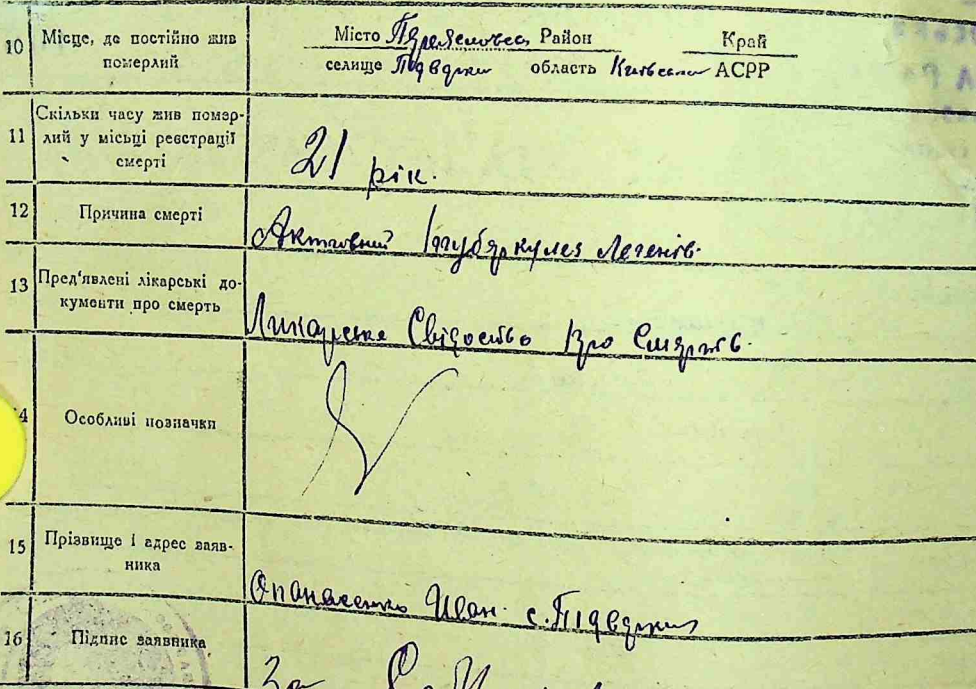 10 Місце, де постійно жив померлий
Місто Район Край
селище Підварки область Київська АСРР
11 Скільки часу жив померлий у місці реєстрації смерті
21 рік.
12 Причина смерті
Активний тубяркулез легенів.
13 Пред'явлені лікарські документи про смерть
Ликарське Свідоство Про Смярть
4 Особливі позначки
15 Прізвище і адрес заявника
Опанасенко Иван. с. Підварки
16 Підпис заявника
За